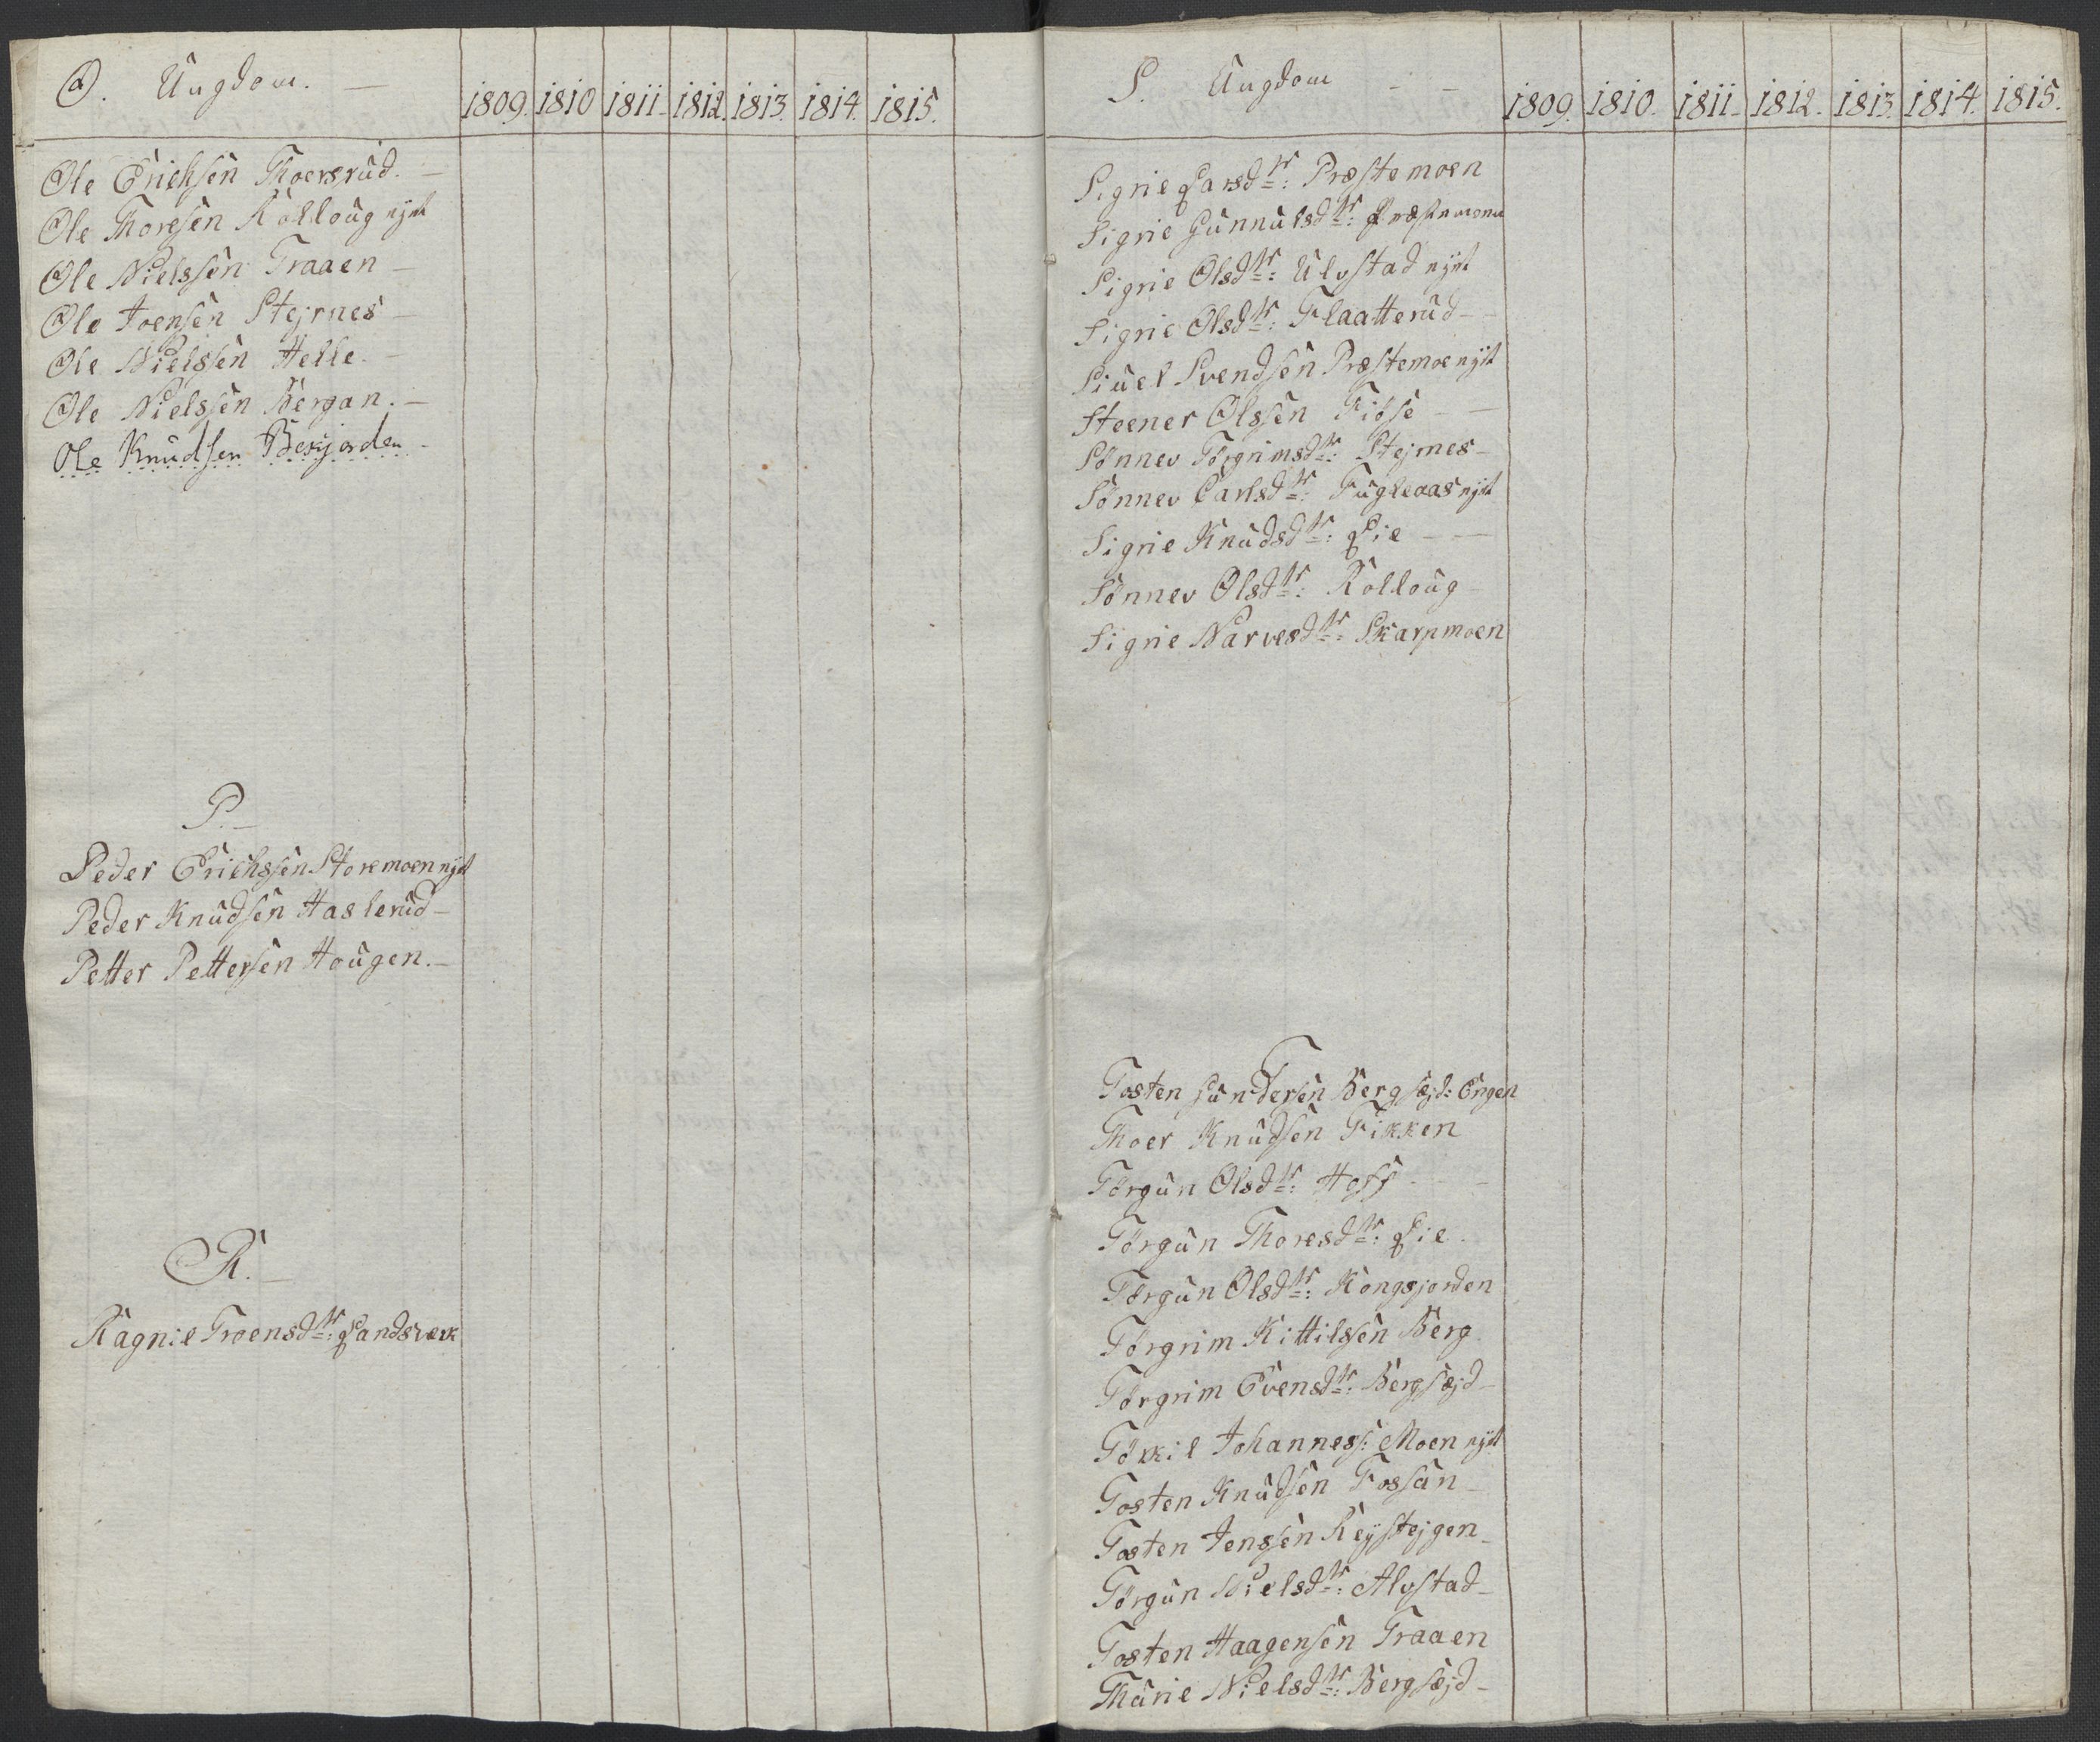 O. Ungdom. —
1809. 1810 1811. 1812. 1813. 1814. 1815.
Ole Erichsen Thoersrud. —
Ole Thoresen Rolloug nÿt
Ole Nielssen Traaen —
Ole Joensen Stejrnes —
Ole Nielssen Helle. —
Ole Nielssen Bergan. —
Ole Knudsen Bekjorden —
P. —
Peder Erichssen Storemoen nÿt
Peder Knudsen Haslerud —
Petter Pettersen Hougen. —
R. —
Ragnil Troensdtr: Landsværk
S. Ungdom — —
1809. 1810. 1811. 1812. 1813. 1814. 1815.
Sigrie Larsdtr: Præstemoen
Sigrie Gunnulsdtr:
Sigrie Olsdtr: Ulvstad nÿt
Sigrie Olsdtr: Flaatterud —
Siuel Svendsen Præstemoe nÿt
Steener Olssen Fiøse — —
Sønnev Torgrimsdtr: Stejrnes —
Sønnev Carlsdtr: Fugleaas nÿt
Sigrie Knudsdtr: Lie — —
Sønnev Olsdtr: Rolloug —
Sigrie Narvesdtr: Skarpmoen
T
Tosten Gundersen Bergsejd: Engen
Thoer Knudsen Fikken
Torgun Olsdtr: Hoff — —
Torgun Thoresdtr: Lie.
Torgun Olsdtr: Kongsjorden
Torgrim Kittilssen Berg.
Torgrim Evensdtr: Bergsejd —
Tokkil Johanness: Moen nÿt
Tosten Knudsen Fossan —
Tosten Jenssen Rejstejgen —
Torgun Nielsdtr: Alvstad —
Tosten Haagensen Traaen
Thurie Nielsdtr: Bergsejd —